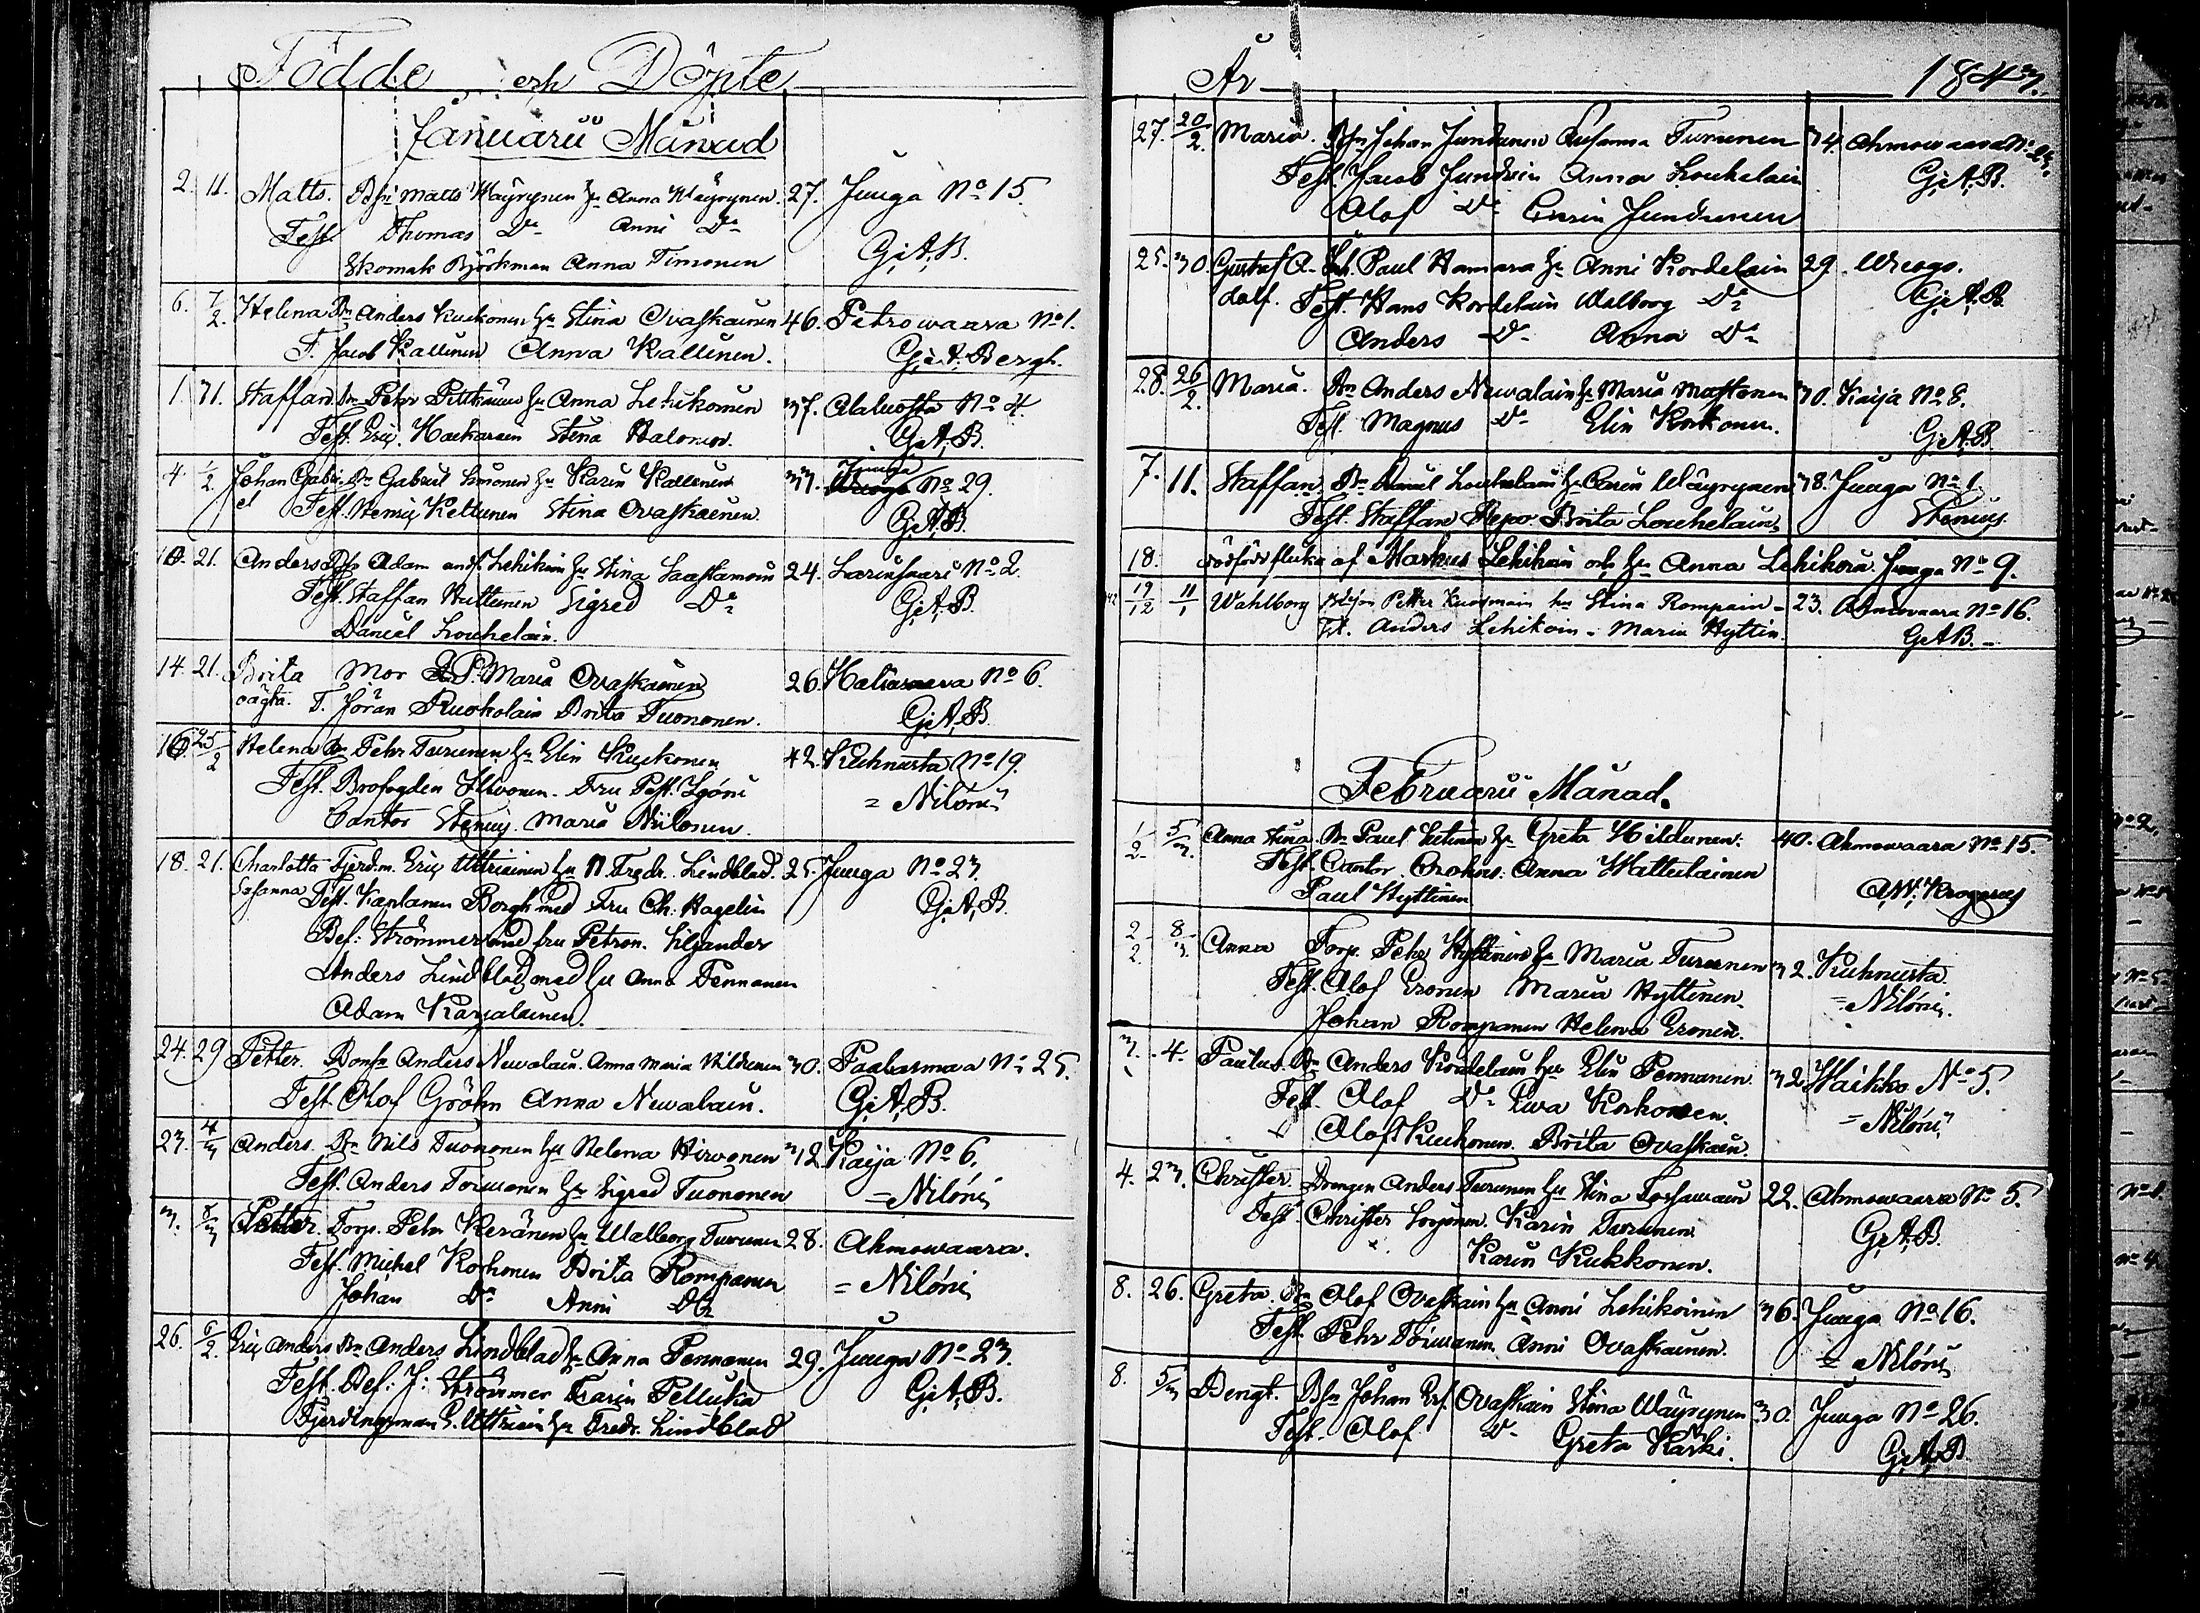 Födde och Döpte
Januarii Månad
2. 11. Matts. Bsn Matts Wäyrynen hu Anna Wäyrynen. 27. Juuga No 15.
Test. Thomas Do Anni Do G:A:B.
Skomak Björkman Anna Timonen
6. 7/2. Helena Bn Anders Kuckonen hu Stina Ovaskainen 46. Petrowaara No 1.
T. Jacob Kallinen Anna Kallinen. G:A:Bergh.
1. 31. Staffan. Bn Pehr Pitkänen hu Anna Lehikoinen 37. Alaluosta No 4.
Test. Eriq. Stina Halonen. G:A:B.
4. 1/2 Johan Gabri- Bn Gabriel Simonen hu Karin Kallinen 33. Juuga No 29.
el Test. Henriq Kettunen Stina Ovaskainen. G:A:B.
10. 21. Anders Bsn Adam And. Lehikoin hu Stina Saastamoin 24. Larinsaari No 2.
Test. Staffan Huttunen Sigred Do G:A:B.
Daniel Louhelain.
14. 21. Brita Mor Maria Ovaskainen 26. No 6.
oägta. T. Jöran Ruokolain Brita Tuononen. G:A:B.
16. 25/2 Helena Bn Pehr Turunen hu Elin Kuckonen 42. Kuhnusta No 19.
Test. Brofogden Ihlvonen. Fru Past. = Nilóni
Cantor Stenius. Maria Niilonen.
18. 21. Charlotta Fjerd.m. Eriq Uttriainen hu N. Fredr. Lindblad. 25. Juuga No 23.
Susanna Test. Kaplanen Bergh med Fru Ch. Hagelin G:A:B.
Bef: Strömmer med fru Petron. Liljander
Anders Lindblad med hu Anna Pennanen
Adam Karjalainen.
24. 29 Petter. Bonsn Anders Newalain. Anna Maria Hildunen 30. Paalasmaa No 25.
Test. Olof Gröhn Anna Newalain. G:A:B.
23. 4/3 Anders. Bn Nils Tuononen hu Helena Hirvonen 32. Kaija No 6.
Test. Anders Toiwonen hu Sigred Tuononen = Nilóni
3. 8/3 Petter. Torp. Pehr Keränen hu Walborg Turunen 28. Ahmowaara.
Test. Michel Korhonen Brita Rompanen = Nilóni
Johan Do Anni Do
26. 6/2. Eriq Anders Bn Anders Lindblad hu Anna Pennanen 29. Juuga No 23.
Test. Bef: J: Strömmer Karin Pelluka G:A:B.
Fjerdingsman E. Uttriain hu Fredr. Lindblad
År 1843.
27. 20/2. Maria. Bsn Johan Jundunen Susanna Turunen 34. Ahmowaara No 23.
Test. Jacob Jundunin Anna Louhelain G:A:B.
Olof Do Carin Jundunen
25. 30. Gustaf A- Inh. Paul Hamara hu Anni Kordelain 29. Wieogs.
dolf. Test. Hans Kordelain Walborg Do G:A:B.
Anders Do Anna Do
28. 26/2. Maria. Bn Anders Newalain hu Maria Mastonen 30. Kaija No 8.
Test. Magnus Do Elin Korkonen. G:A:B.
7. 11. Staffan. Bn Daniel Louhelain hu Carin Wäyrynen 38. Juuga No 1.
Test. Staffan Repo Brita Louhelain. Stenius
18. dödfödt flicka af Markus Lehikoin och hu Anna Lehikoin. Juuga No 9.
42 17/12 11/1 Wahlborg Petter Kuosmain hu Stina Rompain - 23. Ahmovaara No 16.
Tst. Anders Lehikoin - Maria Hyttin. GAB. -
Februarii Månad.
1/2. 5/3. Anna Stina Bn Paul hu Greta Hildunen. 40. Ahmowaara No 15.
Test. Cantor Crohns. Anna Wattulainen A.W. Krogerus
Paul Hyttinen
2/2 8/3 Anna Torp. Pehr Hyttinen hu Maria Turunen 32. Kuhnusta.
Test. Olof Eronen Maria Hyttinen. = Nilóni.
Johan Rompanen Helena Eronen.
3. 4. Paulus. Bn Anders Kordelain hu Elin Pennanen. 32. Waikko No 5.
Test. Olof Do Ewa Korhonen. = Nilóni
Olof Kuckonen. Brita Ovaskain.
4. 23. Christer Drengen Anders Turunen hu Stina 22. Ahmowaara No 5.
Test. Christer Karin Turunen. G:A:B.
Karin Kukkonen.
8. 26. Greta. Bn Olof Ovaskain hu Anni Lehikoinen 36. Juuga No 16.
Test. Pehr Toiwanen Anni Ovaskainen. = Nilóni
8. 5/3 Bengt. Bsn Johan Ovaskain Stina Wäyrynen 30. Juuga No 26.
Test. Olof Do Greta Kärki. G:A:B.